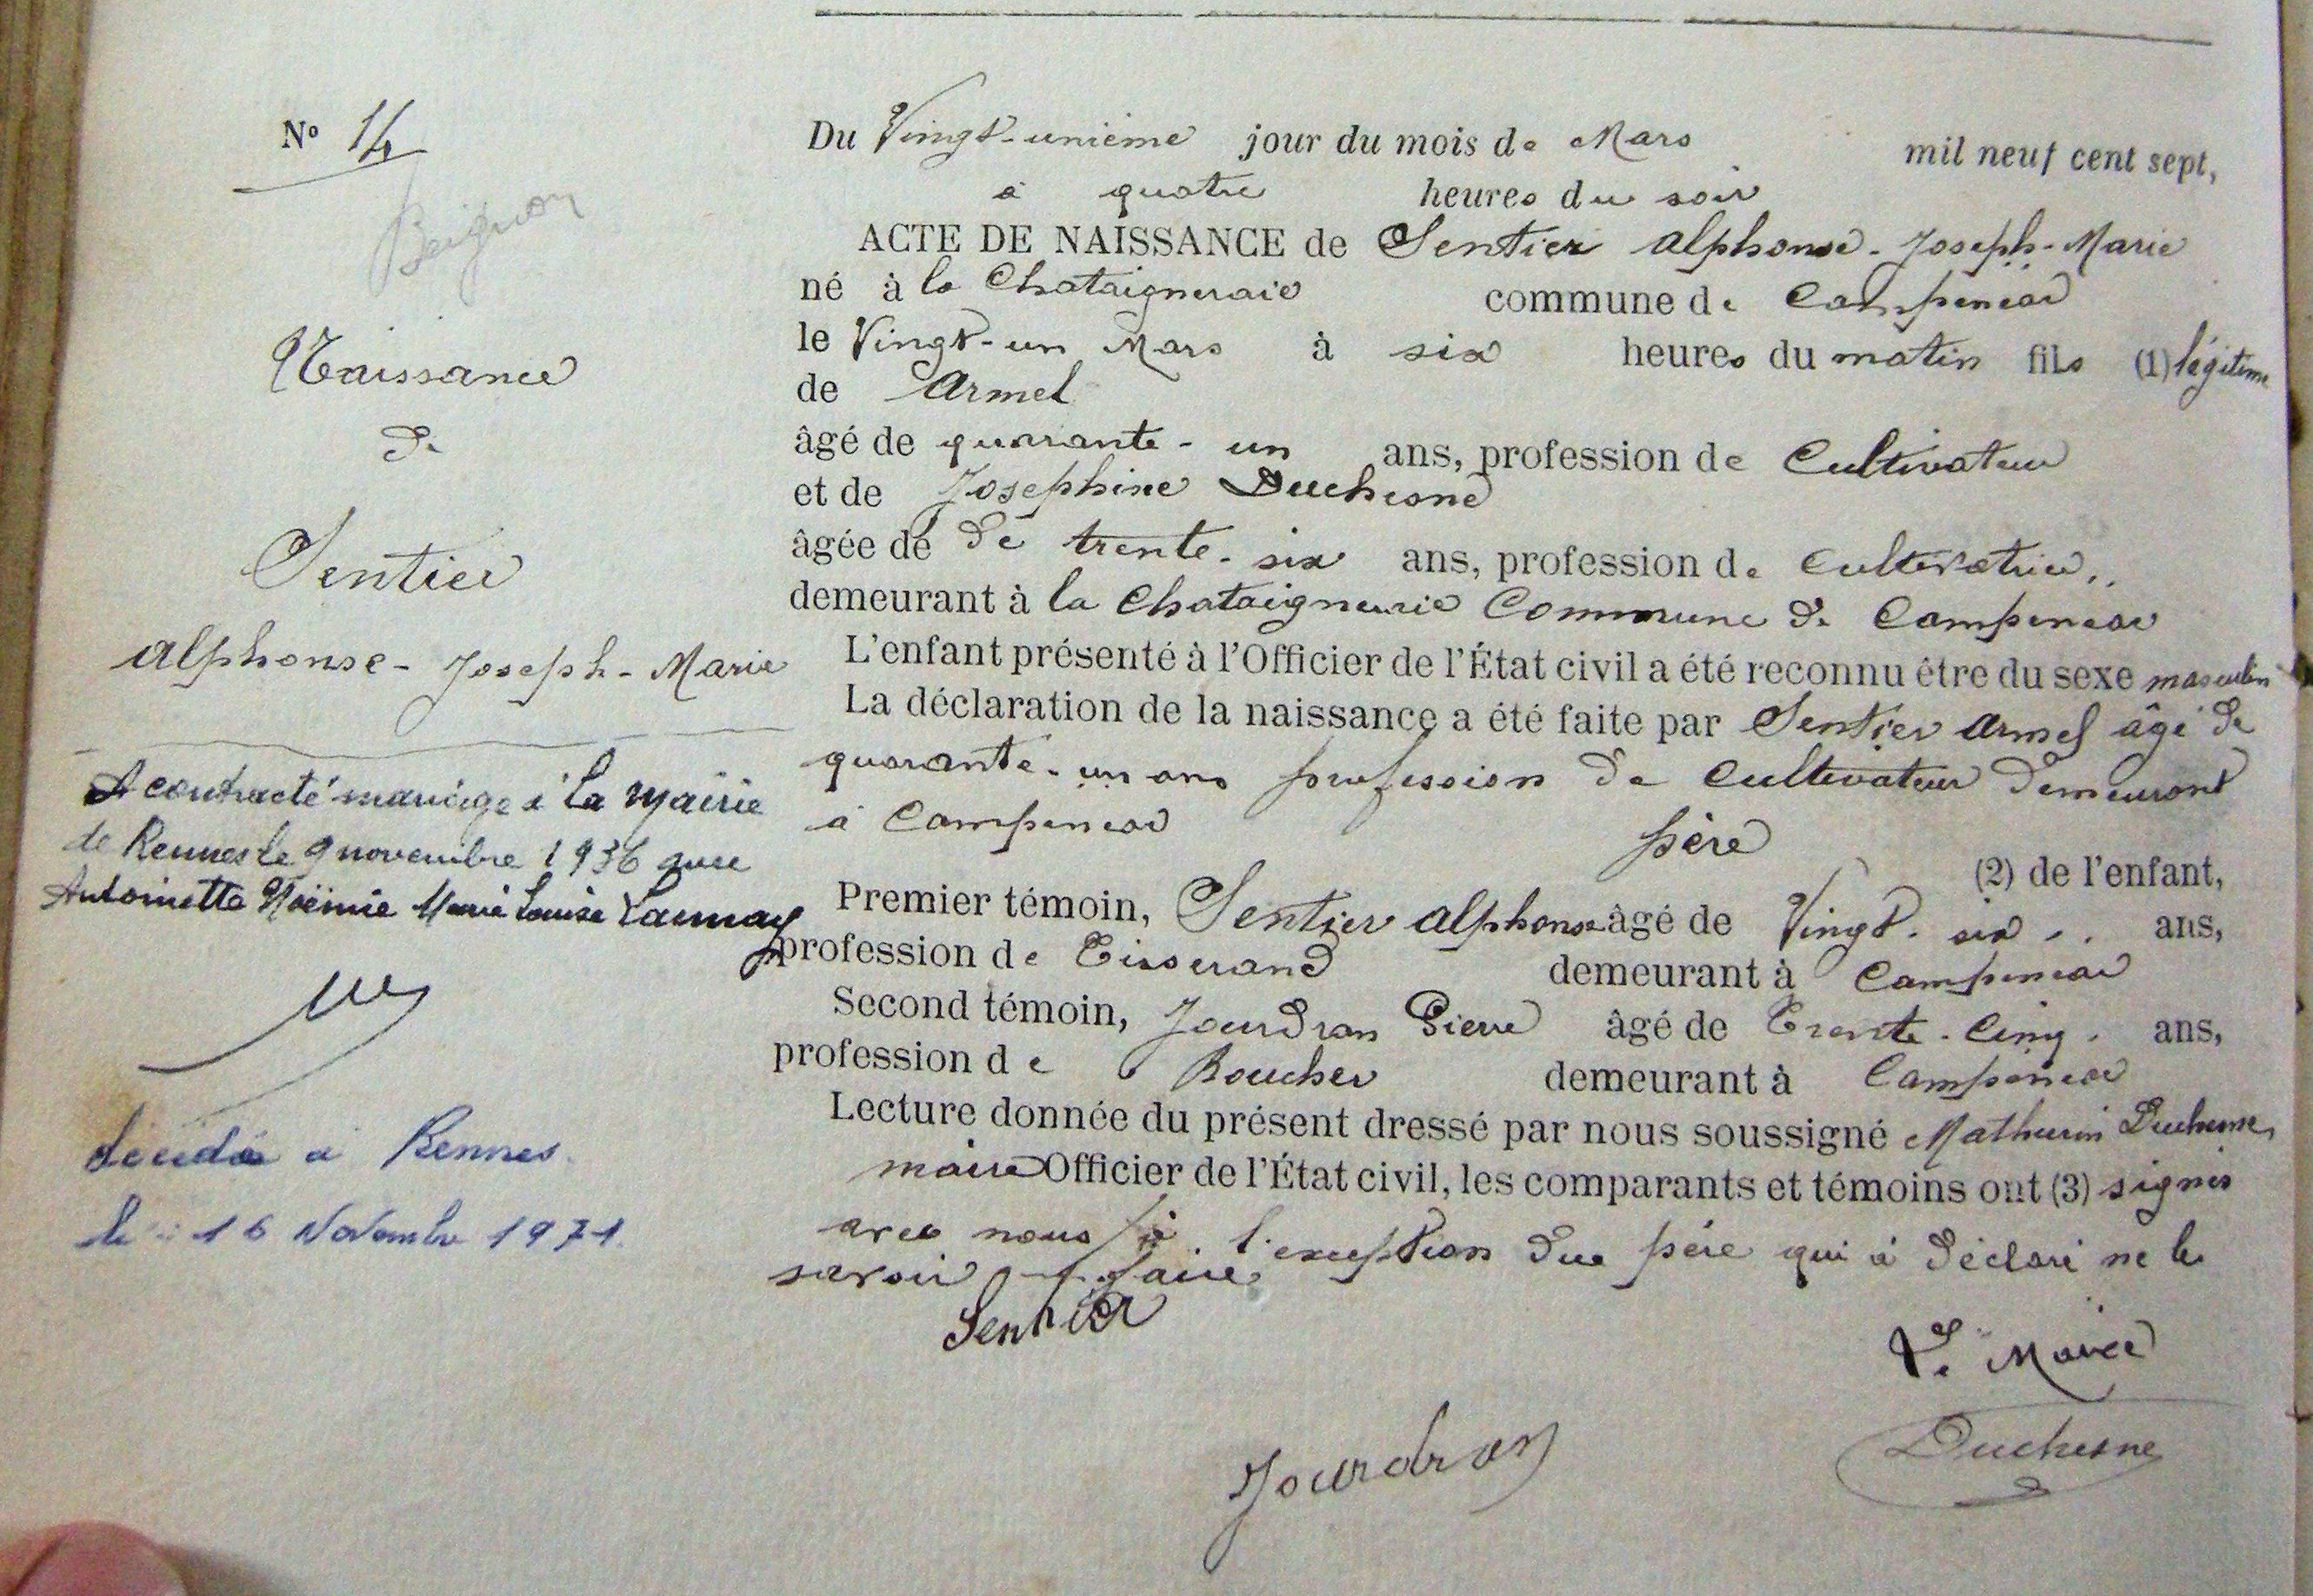 Nº 14
Beignon
Naissance
de
Sentier
Alphonse - Joseph - Marie
A contracté mariage à la Mairie
de Rennes le 9 novembre 1936 avec
Antoinette Noëmie Marie Louise Launay
décédé à Rennes
le 16 Novembre 1971.
Du Vingt-unième jour du mois de Mars mil neuf cent sept,
à quatre heures du soir
ACTE DE NAISSANCE de Sentier Alphonse - Joseph - Marie
né à la Chataigneraie commune de Campénéac
le Vingt-un Mars à six heures du matin fils (1) légitime
de Armel
âgé de quarante-un ans, profession de Cultivateur
et de Josephine Duchesne
âgée de de trente-six ans, profession de Cultivatrice..
demeurant à la Chataigneraie Commune de Campénéac
L'enfant présenté à l'Officier de l'État civil a été reconnu être du sexe masculin
La déclaration de la naissance a été faite par Sentier Armel âgé de
quarante-un ans profession de Cultivateur demeurant
à Campénéac père
(2) de l'enfant,
Premier témoin, Sentier Alphonse âgé de Vingt-six .. ans,
profession de Tisserand demeurant à Campénéac
Second témoin, Jourdran Pierre âgé de Trente-Cinq . ans,
profession de Boucher demeurant à Campénéac
Lecture donnée du présent dressé par nous soussigné Mathurin Duchesne,
maire Officier de l'État civil, les comparants et témoins ont (3) signés
avec nous à l'exception du père qui a déclaré ne le
savoir faire.
Sentier
Le Maire
Jourdran
Duchesne